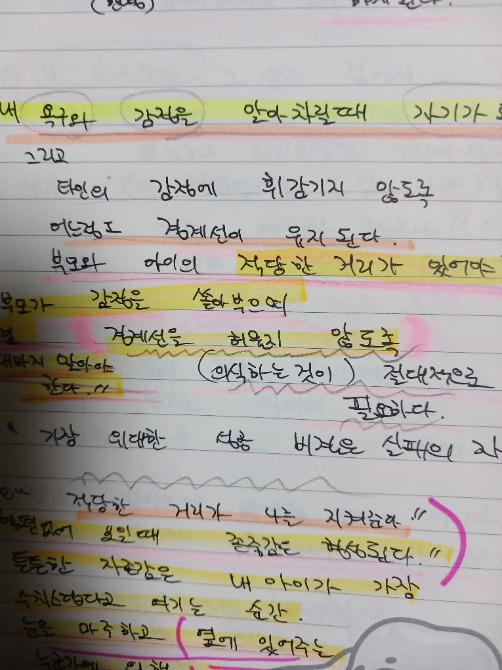 내 욕구와 감정을 알아차릴때 자기가
그리고
타인의 감정에 휘감기지 않도록
어느정도 경계선이 유지된다.
부모와 아이의 적당한 거리가 있어야
부모가 감정을 쏟아부으며
경계선을 허물지 않도록
대하지 말아야 (의식하는 것이) 절대적으로
한다.!! 필요하다.
가장 위대한 성공 비결은 실패의
적당한 거리가 나를 지켜준다"
보일때 존중감은 형성된다."
튼튼한 자존감은 내 아이가 가장
수치스럽다고 여기는 순간.
눈을 마주하고 (옆에 있어주는
누군가에 의해